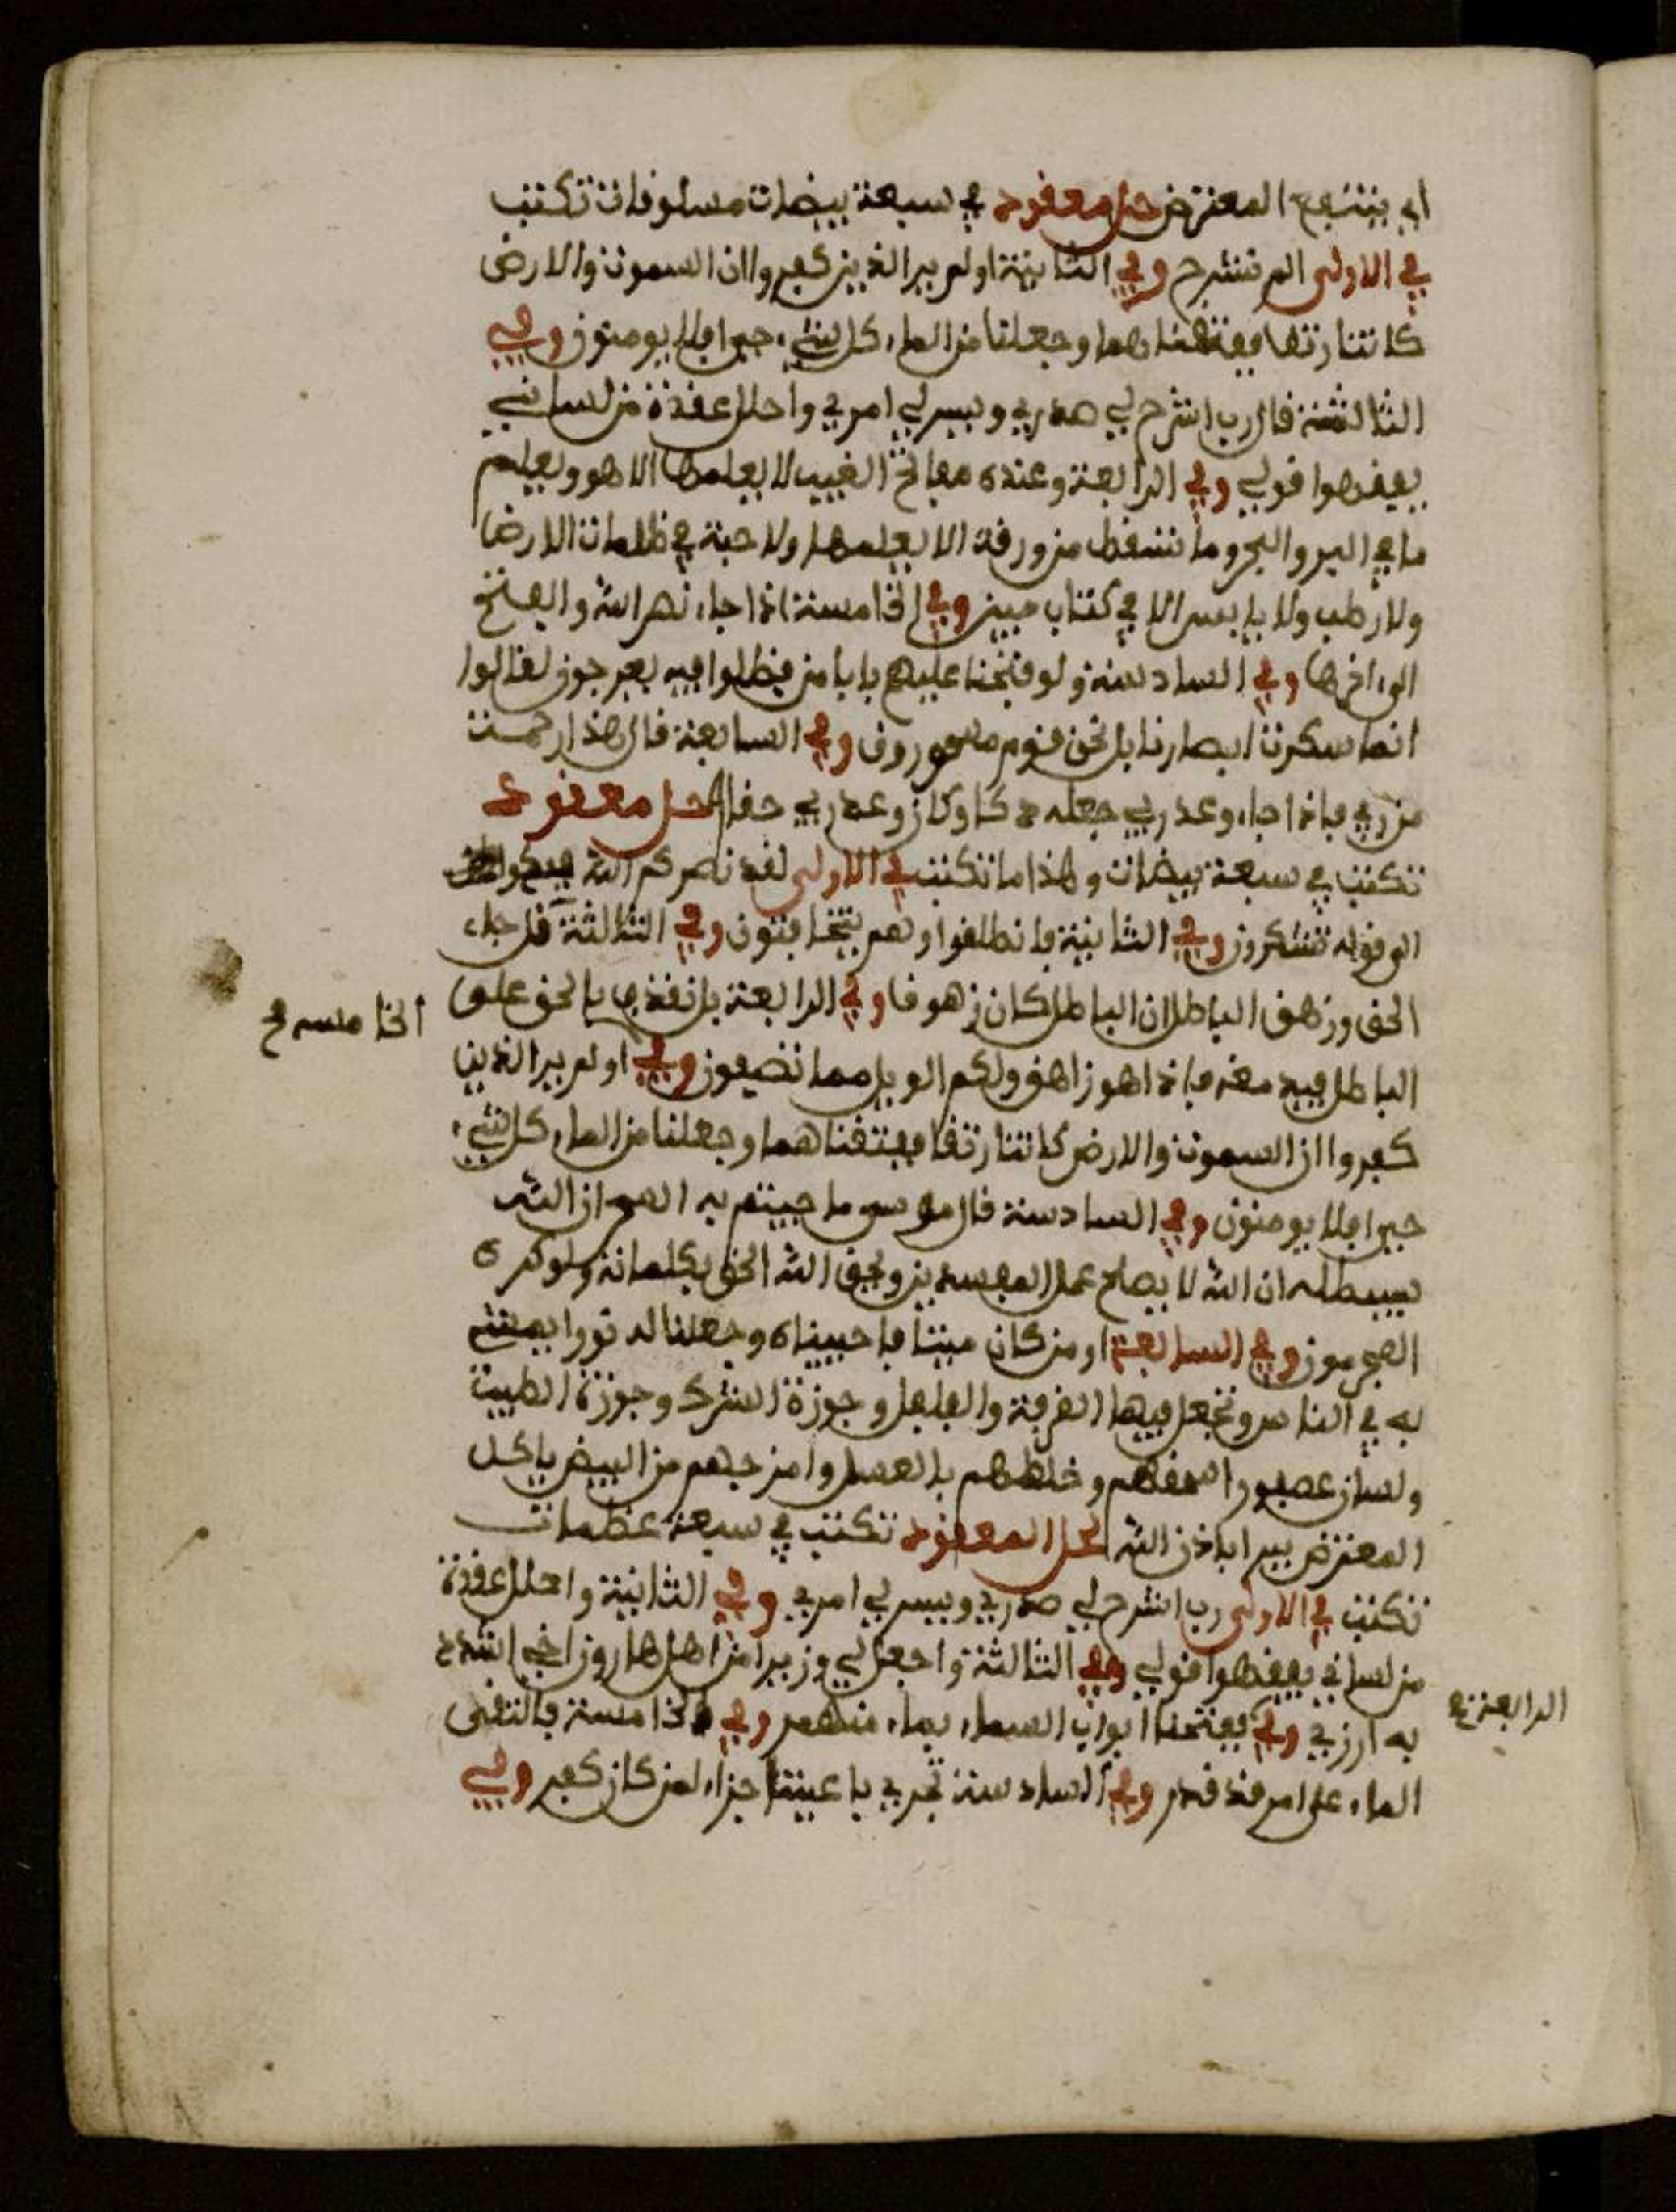 اي ينتفع المعترض حل معقود في سبعة بيضات مسلوقات تكتب
في الاولى الم نشرح وفي الثانية اولم ير الذين كفروا ان السموت والارض
كانتا رتقا ففتقناهما وجعلنا من الماء كل شيء حي افلا يومنون وفي
الثالثة قال رب اشرح لي صدري ويسر لي امري واحلل عقدة من لساني
يفقهوا قولي وفي الرابعة وعنده مفاتح الغيب لا يعلمها الا هو ويعلم
ما في البر والبحر وما تسقط من ورقة الا يعلمها ولا حبة في ظلمات الارض
ولا رطب ولا يابس الا في كتاب مبين وفي الخامسة اذا جاء نصر الله والفتح
الى اخرها وفي السادسة ولو فتحنا عليهم بابا من فظلوا فيه يعرجون لقالوا
انما سكرت ابصارنا بل نحن قوم مسحورون وفي السابعة قال هذا رحمت
من ربي فاذا جاء وعد ربي جعله دكا وكان وعد ربي حقا لحل معقود
تكتب في سبعة بيضات وهذا ما تكتب في الاولى لقد نصركم الله
الى قوله تشكرون وفي الثانية فانطلقوا وهم يتخافتون وفي الثالثة قل جاء
الحق وزهق الباطل ان الباطل كان زهوقا وفي الرابعة بل نقذف بالحق على
الخامسة صح
الباطل فيدمغه فاذا هو زاهق ولكم الويل مما تصفون وفي اولم ير الذين
كفروا ان السموت والارض كانتا رتقا ففتقناهما وجعلنا من الماء كل شيء
حي افلا يومنون وفي السادسة قال موسى ما جيتم به السحر ان الله
سيبطله ان الله لا يصلح عمل المفسدين ويحق الله الحق بكلماته ولو كره
المجرمون وفي السابعة او من كان ميتا فاحييناه وجعلنا له نورا يمشي
به في الناس وتجعل فيها القرفة والفلفل وجوزة الشرك وجوزة الطيب
ولسان عصفور اسحقهم وخلطهم بالعسل وامزجهم من البيض ياكل
المعترض يبرا باذن الله لحل المعقود تكتب في سبعة عظمات
تكتب في الاولى رب اشرح لي صدري ويسر لي امري وفي الثانية واحلل عقدة
من لساني يفقهوا قولي وفي الثالثة واجعل لي وزيرا من اهل هارون اخي اشدد
الرابعة صح
به ازري وفي ففتحنا ابواب السماء بماء منهمر وفي الخامسة فالتقى
الماء على امر قد قدر وفي السادسة تجري باعيننا جزاء لمن كان كفر وفي